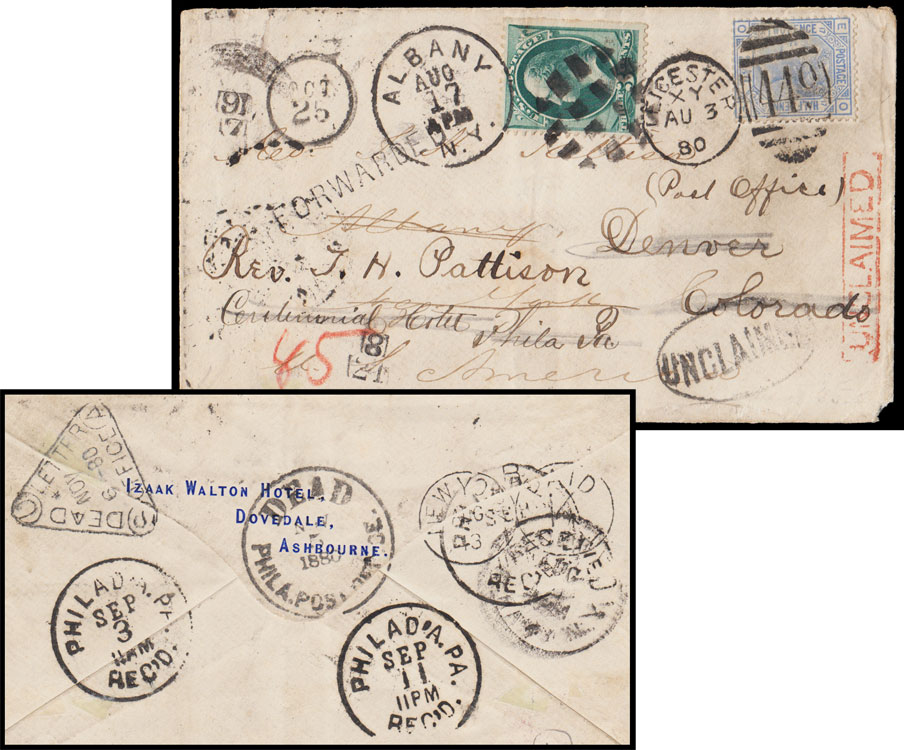 9
7
OCT.
25
ALBANY
AUG
17
4PM
N.Y.
POSTAGE
LEICESTER
XY
AU 3
80
POSTAGE
440
FORWARDED
(Post Office)
Albany
Denver
Rev. T. H. Pattison
New York
Colorado
Centennial Hotel
Phila Pa
45
8
21
UNCLAIMED
UNCLAIMED
DEAD LETTER OFFICE
NOV
80
IZAAK WALTON HOTEL,
DOVEDALE,
ASHBOURNE.
DEAD
5
1880
PHILA. POST OFFICE
NEW YORK
PAID
RECEIVED
REC'D.
PHILAD'A. PA.
SEP
3
11AM
REC'D.
PHILAD'A. PA.
SEP
11
11PM
REC'D.